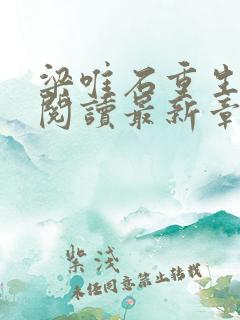 梁唯石重生
閱讀最新章
紫淺
未经同意禁止转载